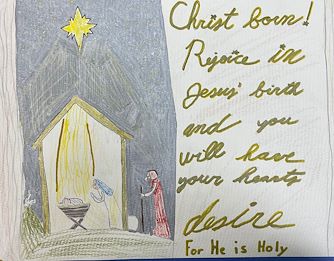 Christ born!
Rejoice in
Jesus' birth
and you
will have
your hearts
desire
For He is Holy